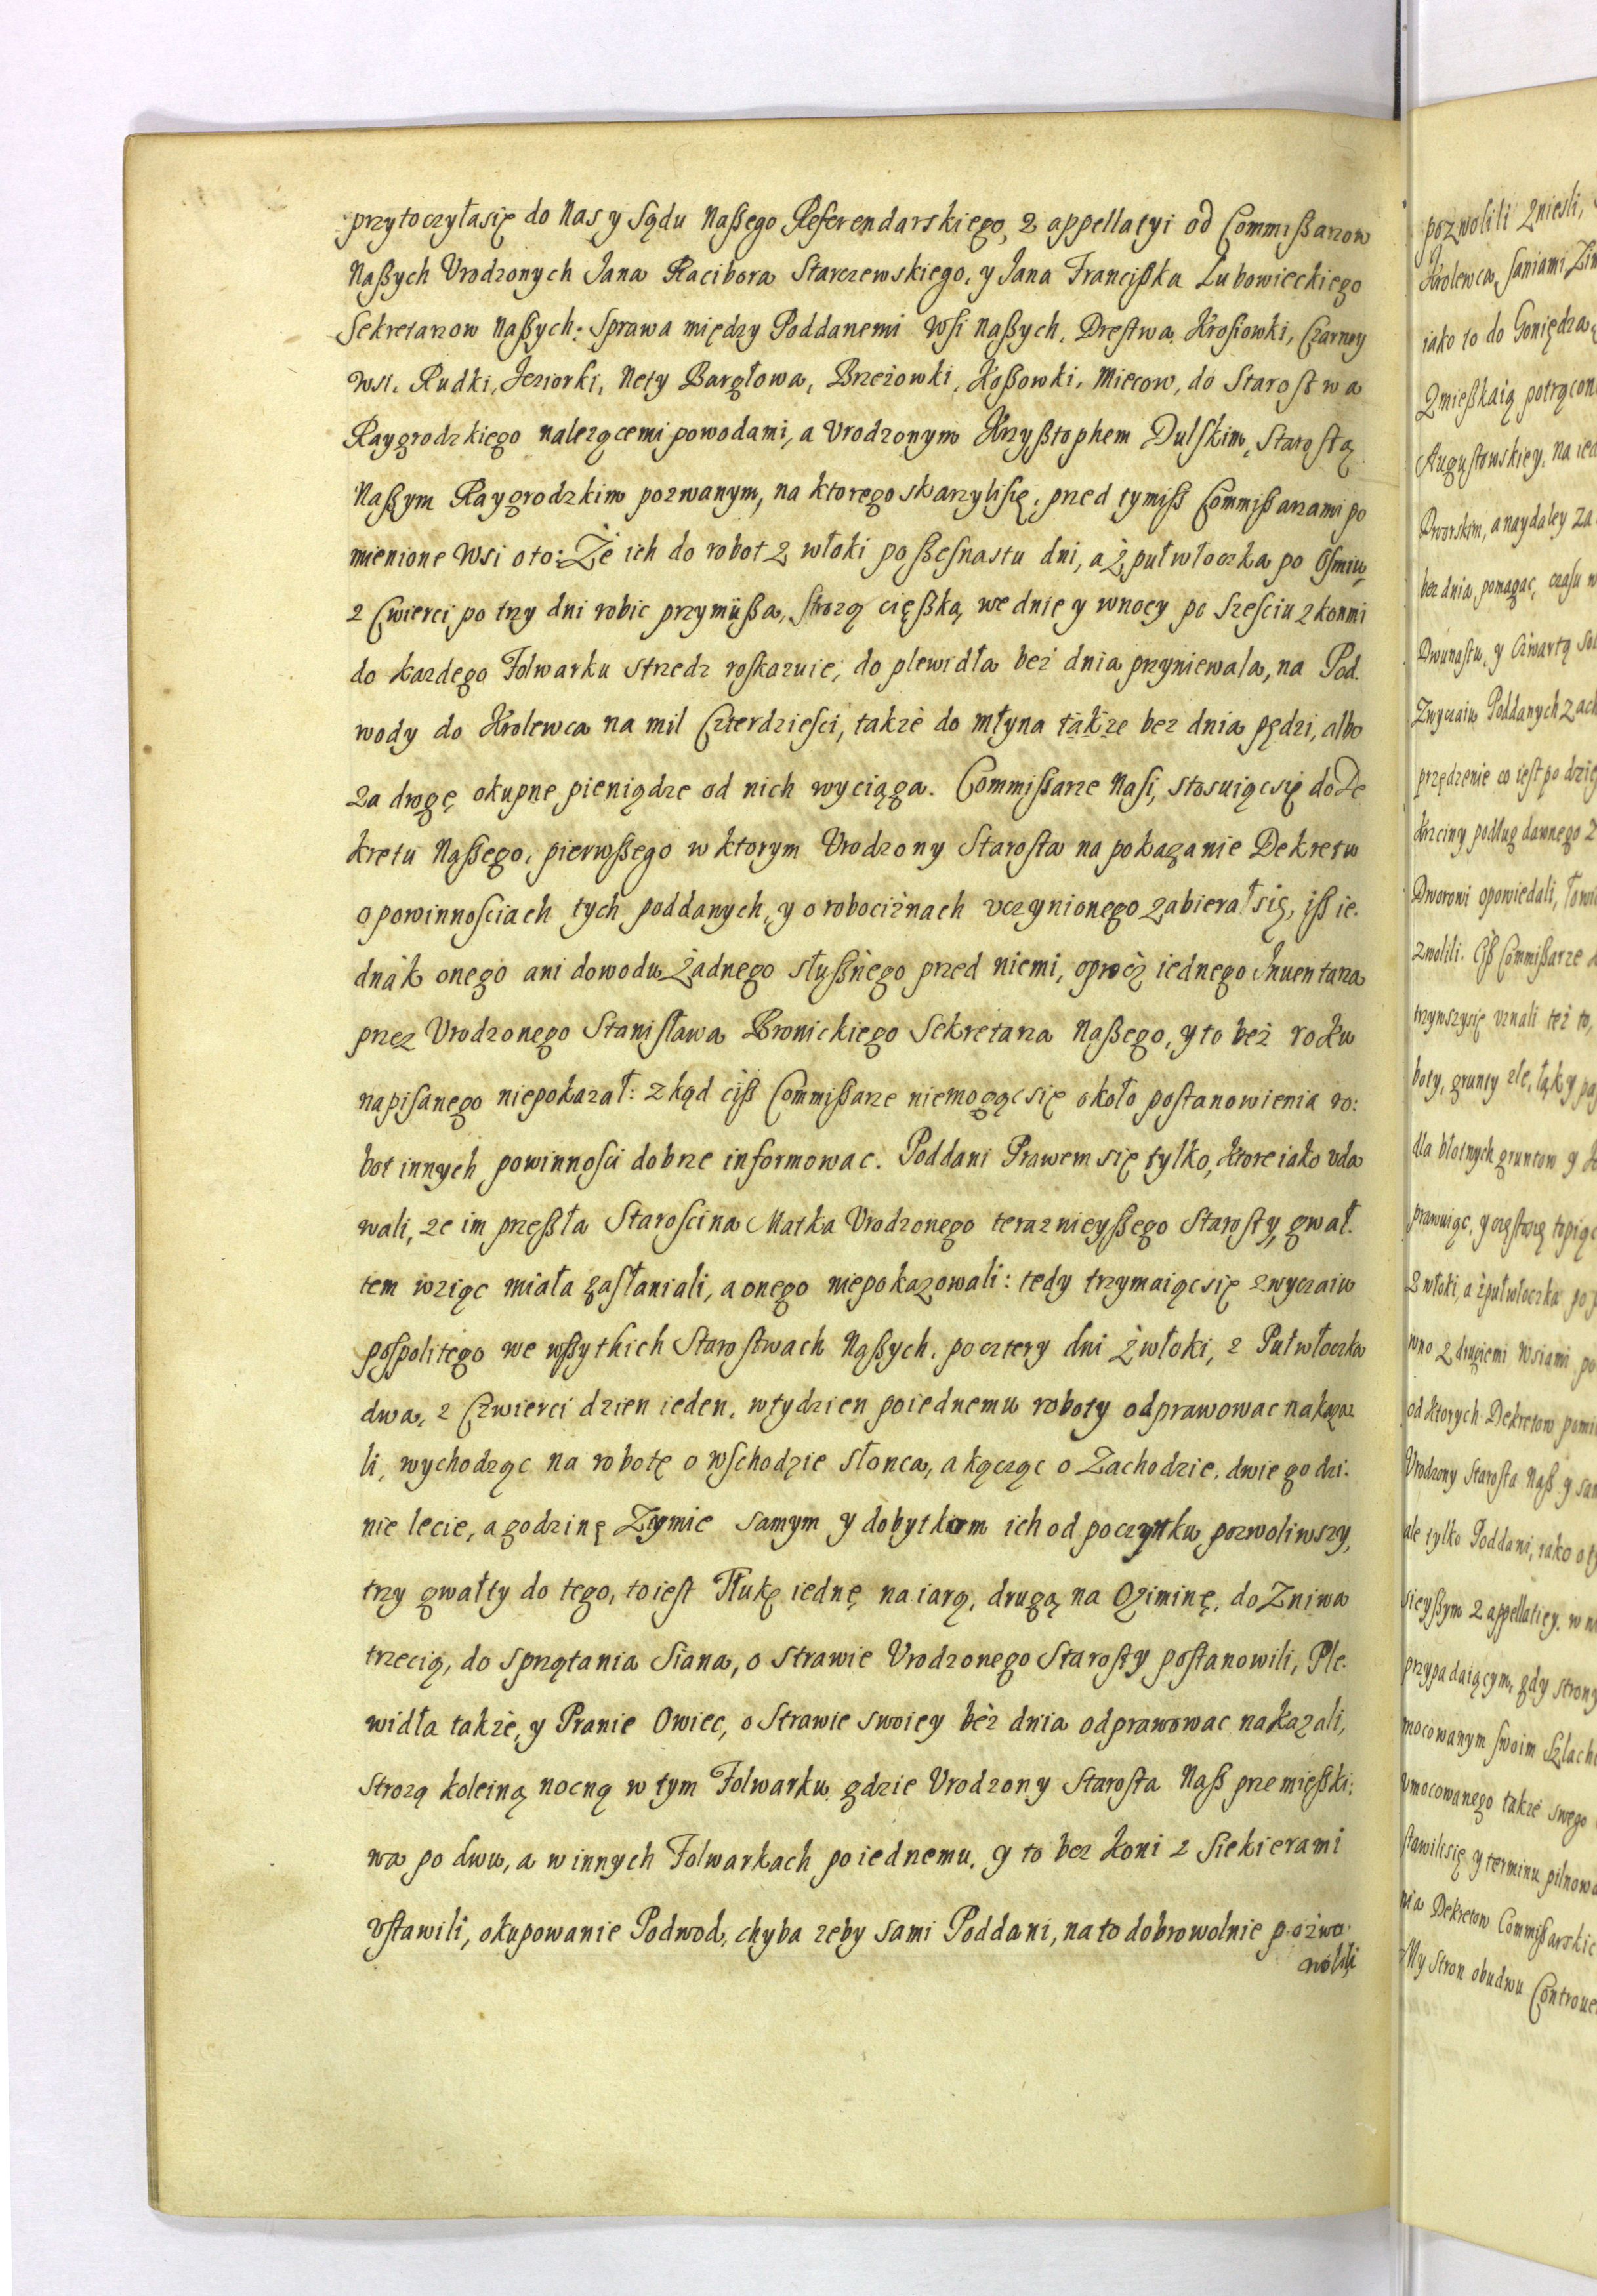 przytoczyłasię do Nas y Sądu Naßego Referendarskiego, z appellatyi od Commißarzow
Naßych Vrodzonych Jana Racibora Starczewskiego, y Jana Francißka Lubowieckiego
Sekretarzow Naßych: Sprawa między Poddanemi Wsi Naßych, Dręstwa, Krosiowki, Czarney
Wsi, Rudki, Jeziorki, Nety Bargłowa, Brzezowki, Koßowki, Miecow, do Starostwa
Raygrodzkiego nalezącemi powodami, a Vrodzonym Krzyßtophem Dulskim, Starostą
Naßym Raygrodzkim pozwanym, na ktorego skarzylisię, przed tymiß Commißarzami po
mienione Wsi oto: Że ich do robot z włoki po ßesnastu dni, a ż pułwłoczka po Osmiu,
z Cwierci po trzy dni robic przymüßa, Strozą cięßką, we dnie y wnocy po Szesciu z konmi
do kazdego Folwarku strzedz roskazuie, do plewidła beż dnia przyniewala, na Pod.
wody do Krolewca na mil Czterdziesci, takżė do młyna także bez dnia pędzi, albo
za drogę okupne pieniądze od nich wyciąga. Commißarze Nasi, stosuiącsię do De
kretu Naßego, pierwßego w ktorym Vrodzony Starosta na pokazanie Dekretu
o powinnosciach tych poddanych, y o robociżnach vczynionego zabierał się, iß ie.
dnák onego ani dowodu żadnego słußnego przed niemi, oprocż iednego Inuentarza
przez Vrodzonego Stanisława Bronickiego Sekretarza Naßego, y to beż roku
napisanego niepokazał: zkąd ciß Commißarze niemogącsię około postanowienia ro:
bot innych powinnosci dobrze informowac. Poddani Prawem się tylko, ktore iako vda
wali, ze im przeßła Staroscina Matka Vrodzonego teraznieyßego Starosty, gwał.
tem wziąc miała zasłaniali, a onego niepokazowali: tedy trzymaiącsię zwyczaiu
pospolitego we wßytkich Starostwach Naßych, po cztery dni ż włoki, z Pułwłoczka
dwa, z Czwierci dzien ieden, wtydzien poiednemu roboty odprawowac nakaza
li, wychodząc na robotę o wschodzie słonca, a kącząc o Zachodzie, dwie godzi.
nie lecie, a godzinę Zymie samym y dobytkom ich od poczynku pozwoliwszy,
trzy gwałty do tego, toiest Tłukę iednę na iarą, drugą na Oziminę, do Zniwa
trzecią, do sprzątania Siana, o strawie Vrodzonego Starosty postanowili, Ple.
widła także, y Pranie Owiec, o Strawie swoiey beż dnia odprawowac nakazali,
strozą koleiną nocną w tym Folwarku gdzie Vrodzony Starosta Naß przemięßki:
wa po dwu, a w innych Folwarkach po iednemu, y to bez koni z siekierami
vstawili, okupowanie Podwod, chyba zeby sami Poddani, na to dobrowolnie pozwo
wolili
pozwolili Zniesli,
Krolewca, saniami
iako to do Goniędza
Zmießkaią potrącon
Augustowskiey, na
Dworskim, a naydaley za
bez dnia, pomagac, czasu
Dwunastu, y Czwartą
Zwyczaiu Poddanych
przędzenie co iest po
krzciny podług dawnego
Dworowi opowiedali,
zwolili. Ciß Commißarze
trzywszysię vznali też to,
boty, grunty zle, łąky
dla błotnych gruntow y
prawuiąc, y częstozę topiąc
Z włoki, a żpułwłoczka
wno z drugiemi Wsiami
od ktorych Dekretow
Vrodzony Starosta Naß y
ale tylko Poddani, iako
sieyßym z appellatiey.
przypadaiącym, gdy strony
mocowanym swoim
vmocowanego także swego
stawilisię y terminu
nia Dekretow
My stron obudwu